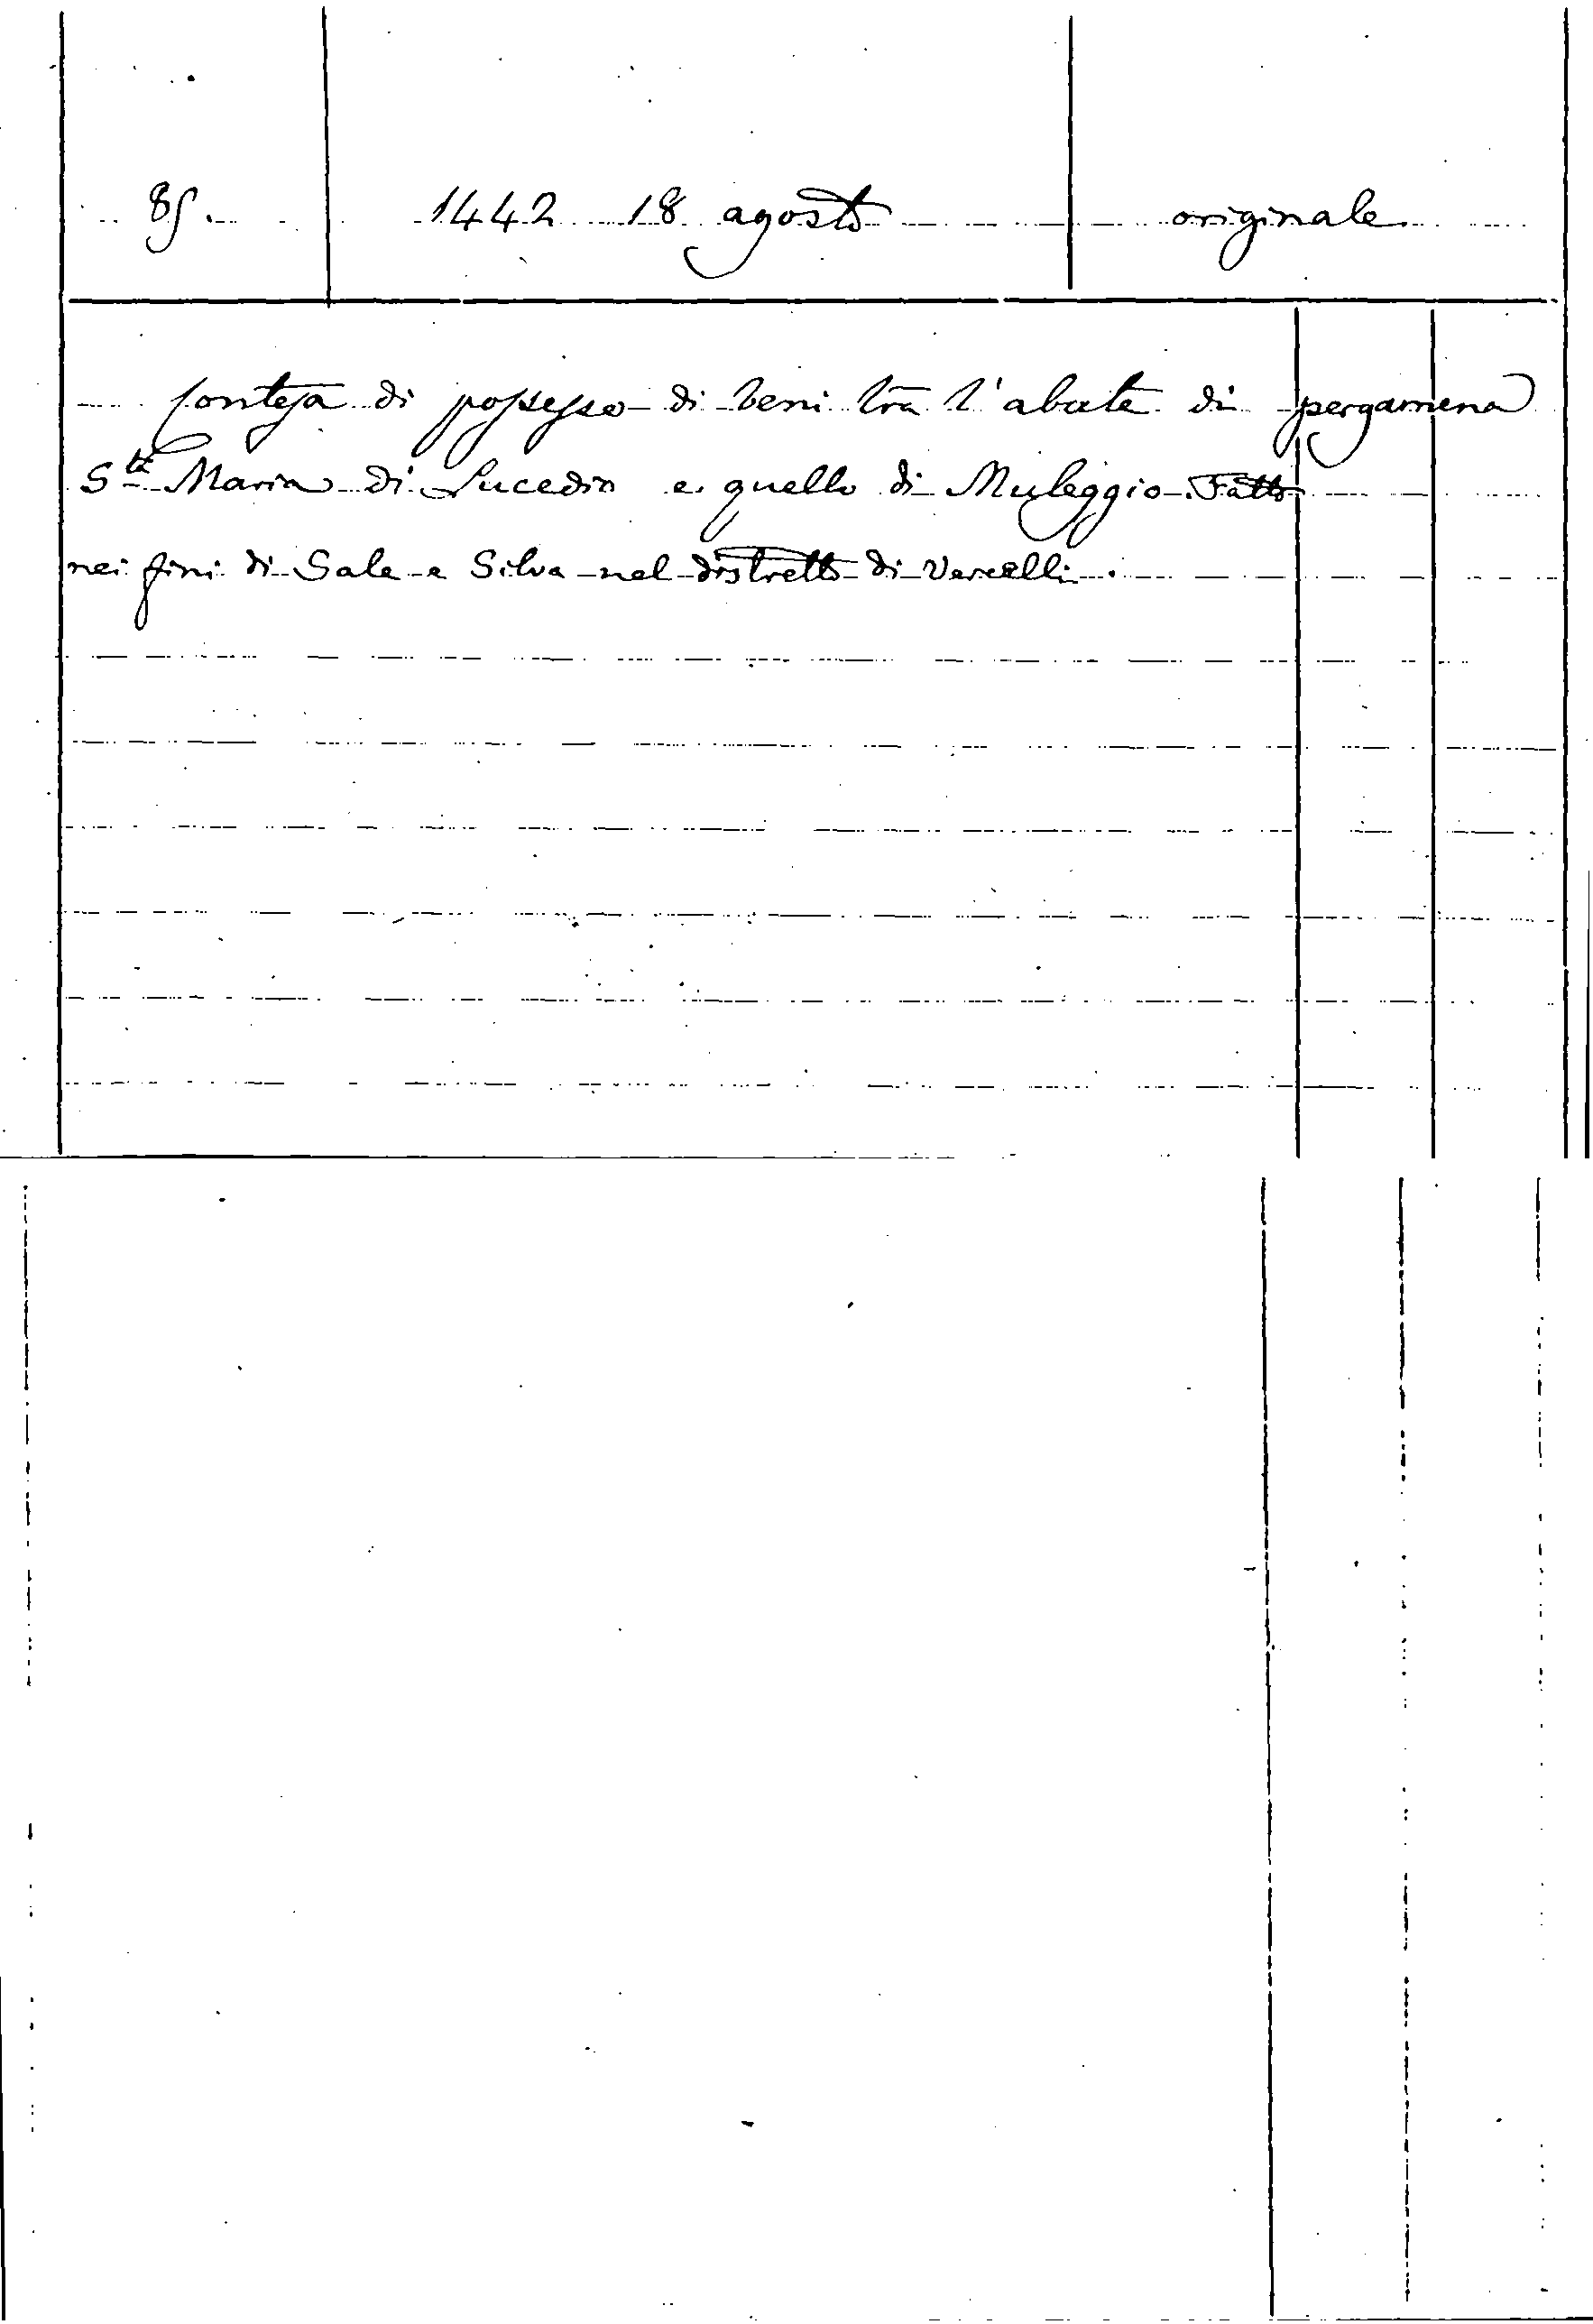 85. 1442 18 agosto originale
Contesa di possesso di beni tra l'abate di pergamena
Sta Maria di Lucedio e quello di Muleggio. Fatto
nei fini di Sale e Silva nel distretto di Vercelli.